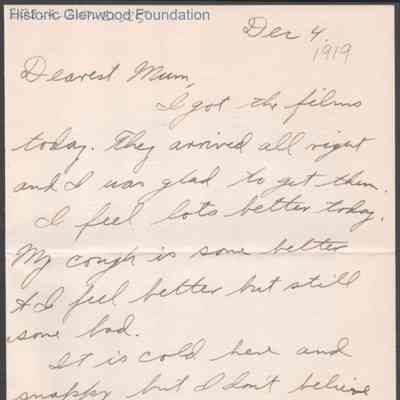 Historic Glenwood Foundation
Dec 4,
1919
Dearest Mum,
I got the films
today. They arrived all right
and I was glad to get them.
I feel lots better today.
My cough is some better
& I feel better but still
some bad.
It is cold here and
snappy but I don't believe